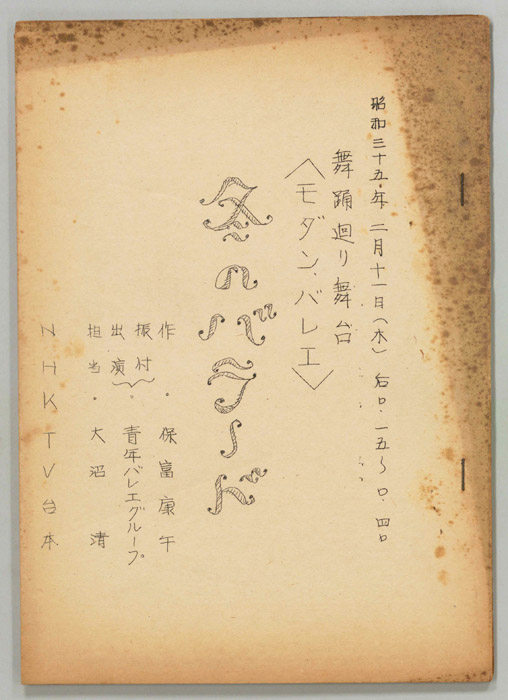 昭和三十五年 二月十一日(木) 后0・一五~0・四0
舞踊廻り舞台
<モダン・バレエ>
冬のバラード
作 ・ 保富康午
振付
出演 } ・ 青年バレエグループ
担当 ・ 大沼 清
NHK TV台本